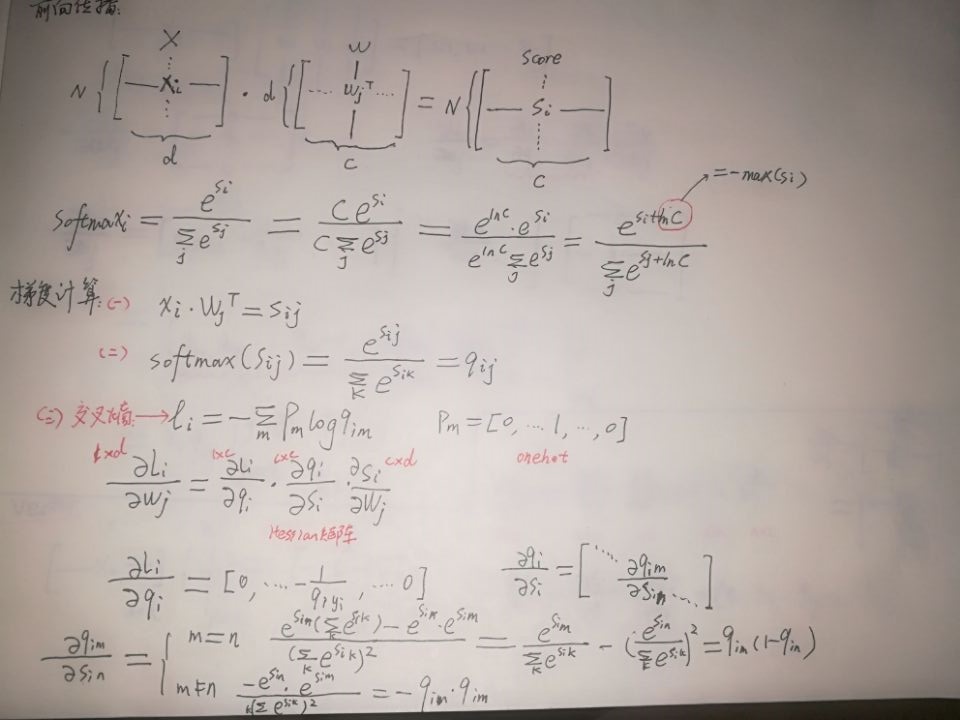 前向传播:
X W Score
N { [ — xi — ] · d { [ ···· wj^T ···· ] = N { [ — Si — ]
d C C
=-max(Si)
softmaxi = e^{Si} / Σ_j e^{Sj} = C e^{Si} / C Σ_j e^{Sj} = e^{lnC}·e^{Si} / e^{lnC} Σ_j e^{Sj} = e^{Si+lnC} / Σ_j e^{Sj+lnC}
梯度计算: (一) xi·Wj^T = Sij
(二) softmax(Sij) = e^{Sij} / Σ_k e^{Sik} = qij
(三) 交叉熵: → li = -Σ_m Pm log qim Pm = [0, ··· 1, ··, 0]
onehot
1xd 1xc cxc cxd
∂Li/∂Wj = ∂Li/∂qi · ∂qi/∂Si · ∂Si/∂Wj
Hessian矩阵
∂Li/∂qi = [0, ···· -1/qiyi, ···· 0] ∂qi/∂Si = [ ···· ∂qim/∂Sin ···· ]
∂qim/∂Sin = { m=n (e^{Sin}(Σ_k e^{Sik}) - e^{Sin}·e^{Sim}) / (Σ_k e^{Sik})^2 = e^{Sim} / Σ_k e^{Sik} - (e^{Sin} / Σ_k e^{Sik})^2 = qim(1-qin)
m≠n -e^{Sin}·e^{Sim} / (Σ e^{Sik})^2 = -qim·qim